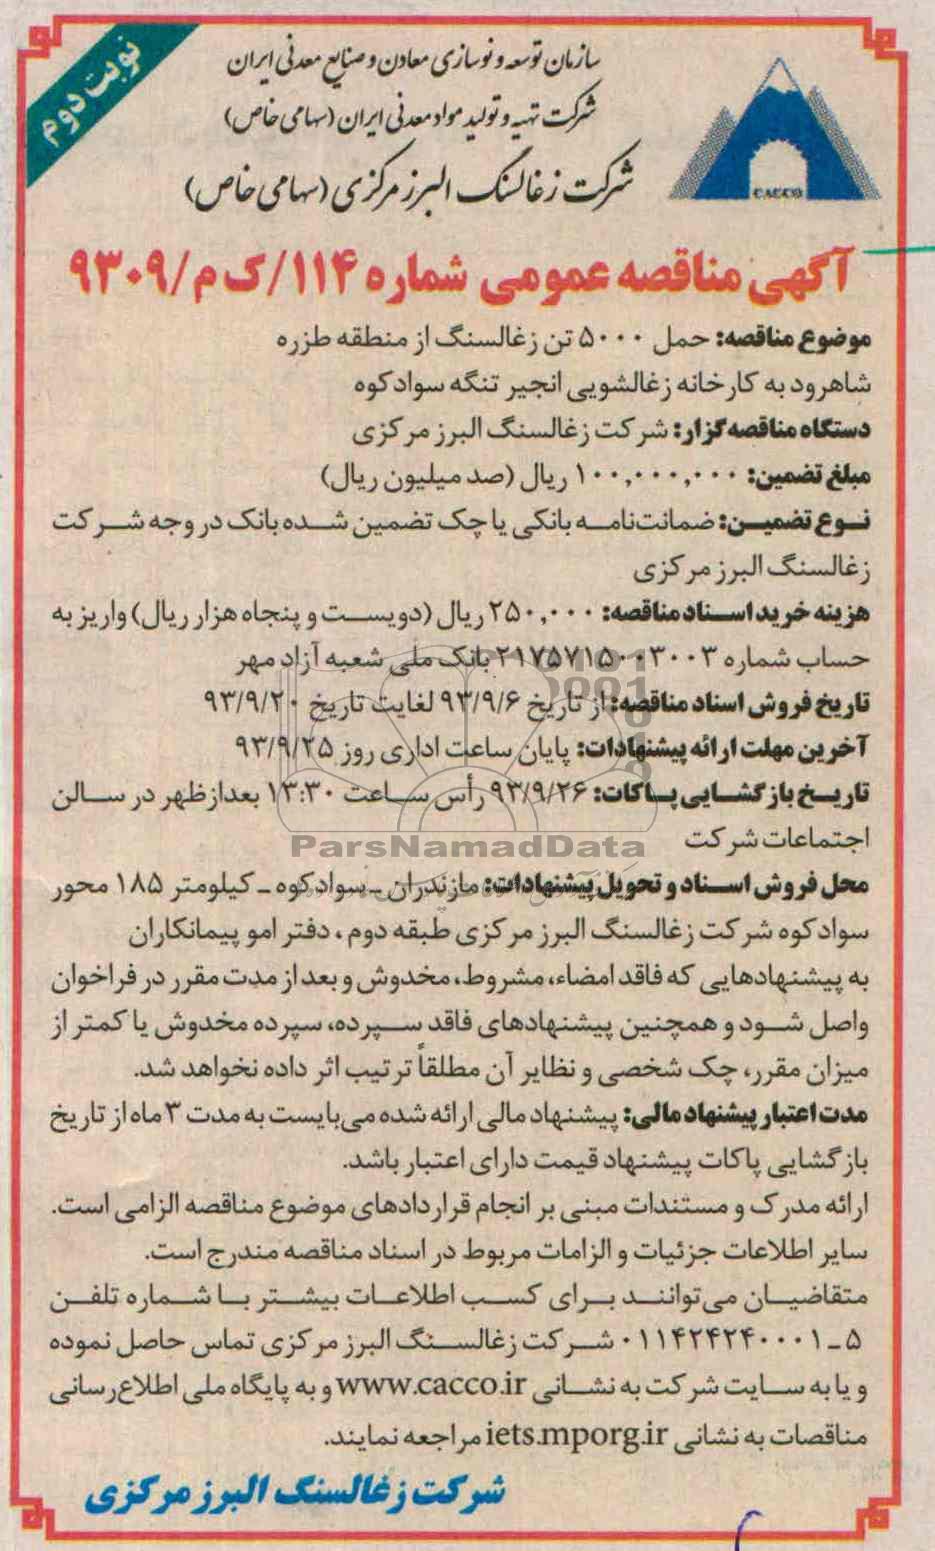 نوبت دوم
سازمان توسعه و نوسازی معادن و صنایع معدنی ایران
شرکت تهیه و تولید مواد معدنی ایران (سهامی خاص)
شرکت زغالسنگ البرز مرکزی (سهامی خاص)
CACCO
آگهی مناقصه عمومی شماره ۱۱۴/ک م/۹۳۰۹
موضوع مناقصه: حمل ۵۰۰۰ تن زغالسنگ از منطقه طزره
شاهرود به کارخانه زغالشویی انجیر تنگه سوادکوه
دستگاه مناقصه‌گزار: شرکت زغالسنگ البرز مرکزی
مبلغ تضمین: ۱۰۰,۰۰۰,۰۰۰ ریال (صد میلیون ریال)
نوع تضمین: ضمانت‌نامه بانکی یا چک تضمین شده بانک در وجه شرکت
زغالسنگ البرز مرکزی
هزینه خرید اسناد مناقصه: ۲۵۰,۰۰۰ ریال (دویست و پنجاه هزار ریال) واریز به
حساب شماره ۲۱۷۵۷۱۵۰۰۳۰۰۳ بانک ملی شعبه آزاد مهر
تاریخ فروش اسناد مناقصه: از تاریخ ۹۳/۹/۶ لغایت تاریخ ۹۳/۹/۲۰
آخرین مهلت ارائه پیشنهادات: پایان ساعت اداری روز ۹۳/۹/۲۵
تاریخ بازگشایی پاکات: ۹۳/۹/۲۶ رأس ساعت ۱۳:۳۰ بعدازظهر در سالن
اجتماعات شرکت
ParsNamadData
محل فروش اسناد و تحویل پیشنهادات: مازندران ـ سوادکوه ـ کیلومتر ۱۸۵ محور
سوادکوه شرکت زغالسنگ البرز مرکزی طبقه دوم، دفتر امو پیمانکاران
به پیشنهادهایی که فاقد امضاء، مشروط، مخدوش و بعد از مدت مقرر در فراخوان
واصل شود و همچنین پیشنهادهای فاقد سپرده، سپرده مخدوش یا کمتر از
میزان مقرر، چک شخصی و نظایر آن مطلقاً ترتیب اثر داده نخواهد شد.
مدت اعتبار پیشنهاد مالی: پیشنهاد مالی ارائه شده می‌بایست به مدت ۳ ماه از تاریخ
بازگشایی پاکات پیشنهاد قیمت دارای اعتبار باشد.
ارائه مدرک و مستندات مبنی بر انجام قراردادهای موضوع مناقصه الزامی است.
سایر اطلاعات جزئیات و الزامات مربوط در اسناد مناقصه مندرج است.
متقاضیان می‌توانند برای کسب اطلاعات بیشتر با شماره تلفن
۵ ـ ۰۱۱۴۲۴۲۴۰۰۰۱ شرکت زغالسنگ البرز مرکزی تماس حاصل نموده
و یا به سایت شرکت به نشانی www.cacco.ir و به پایگاه ملی اطلاع‌رسانی
مناقصات به نشانی iets.mporg.ir مراجعه نمایند.
شرکت زغالسنگ البرز مرکزی